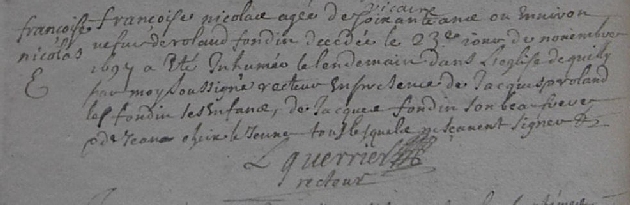 françoise
nicolas
françoise nicolas agée de soixante ans ou environ
vefue de roland fondin decedée le 23e iour de nouembre
1697 a eté Inhumée le lendemain dans l'eglise de quilly
par moy soussigné recteur En presence de Jacques roland
les fondin ses Enfans, de Jacques fondin son beau frere
et de Jean le Jeune tous lesquels ne sçauent signer &
L guerrier
recteur